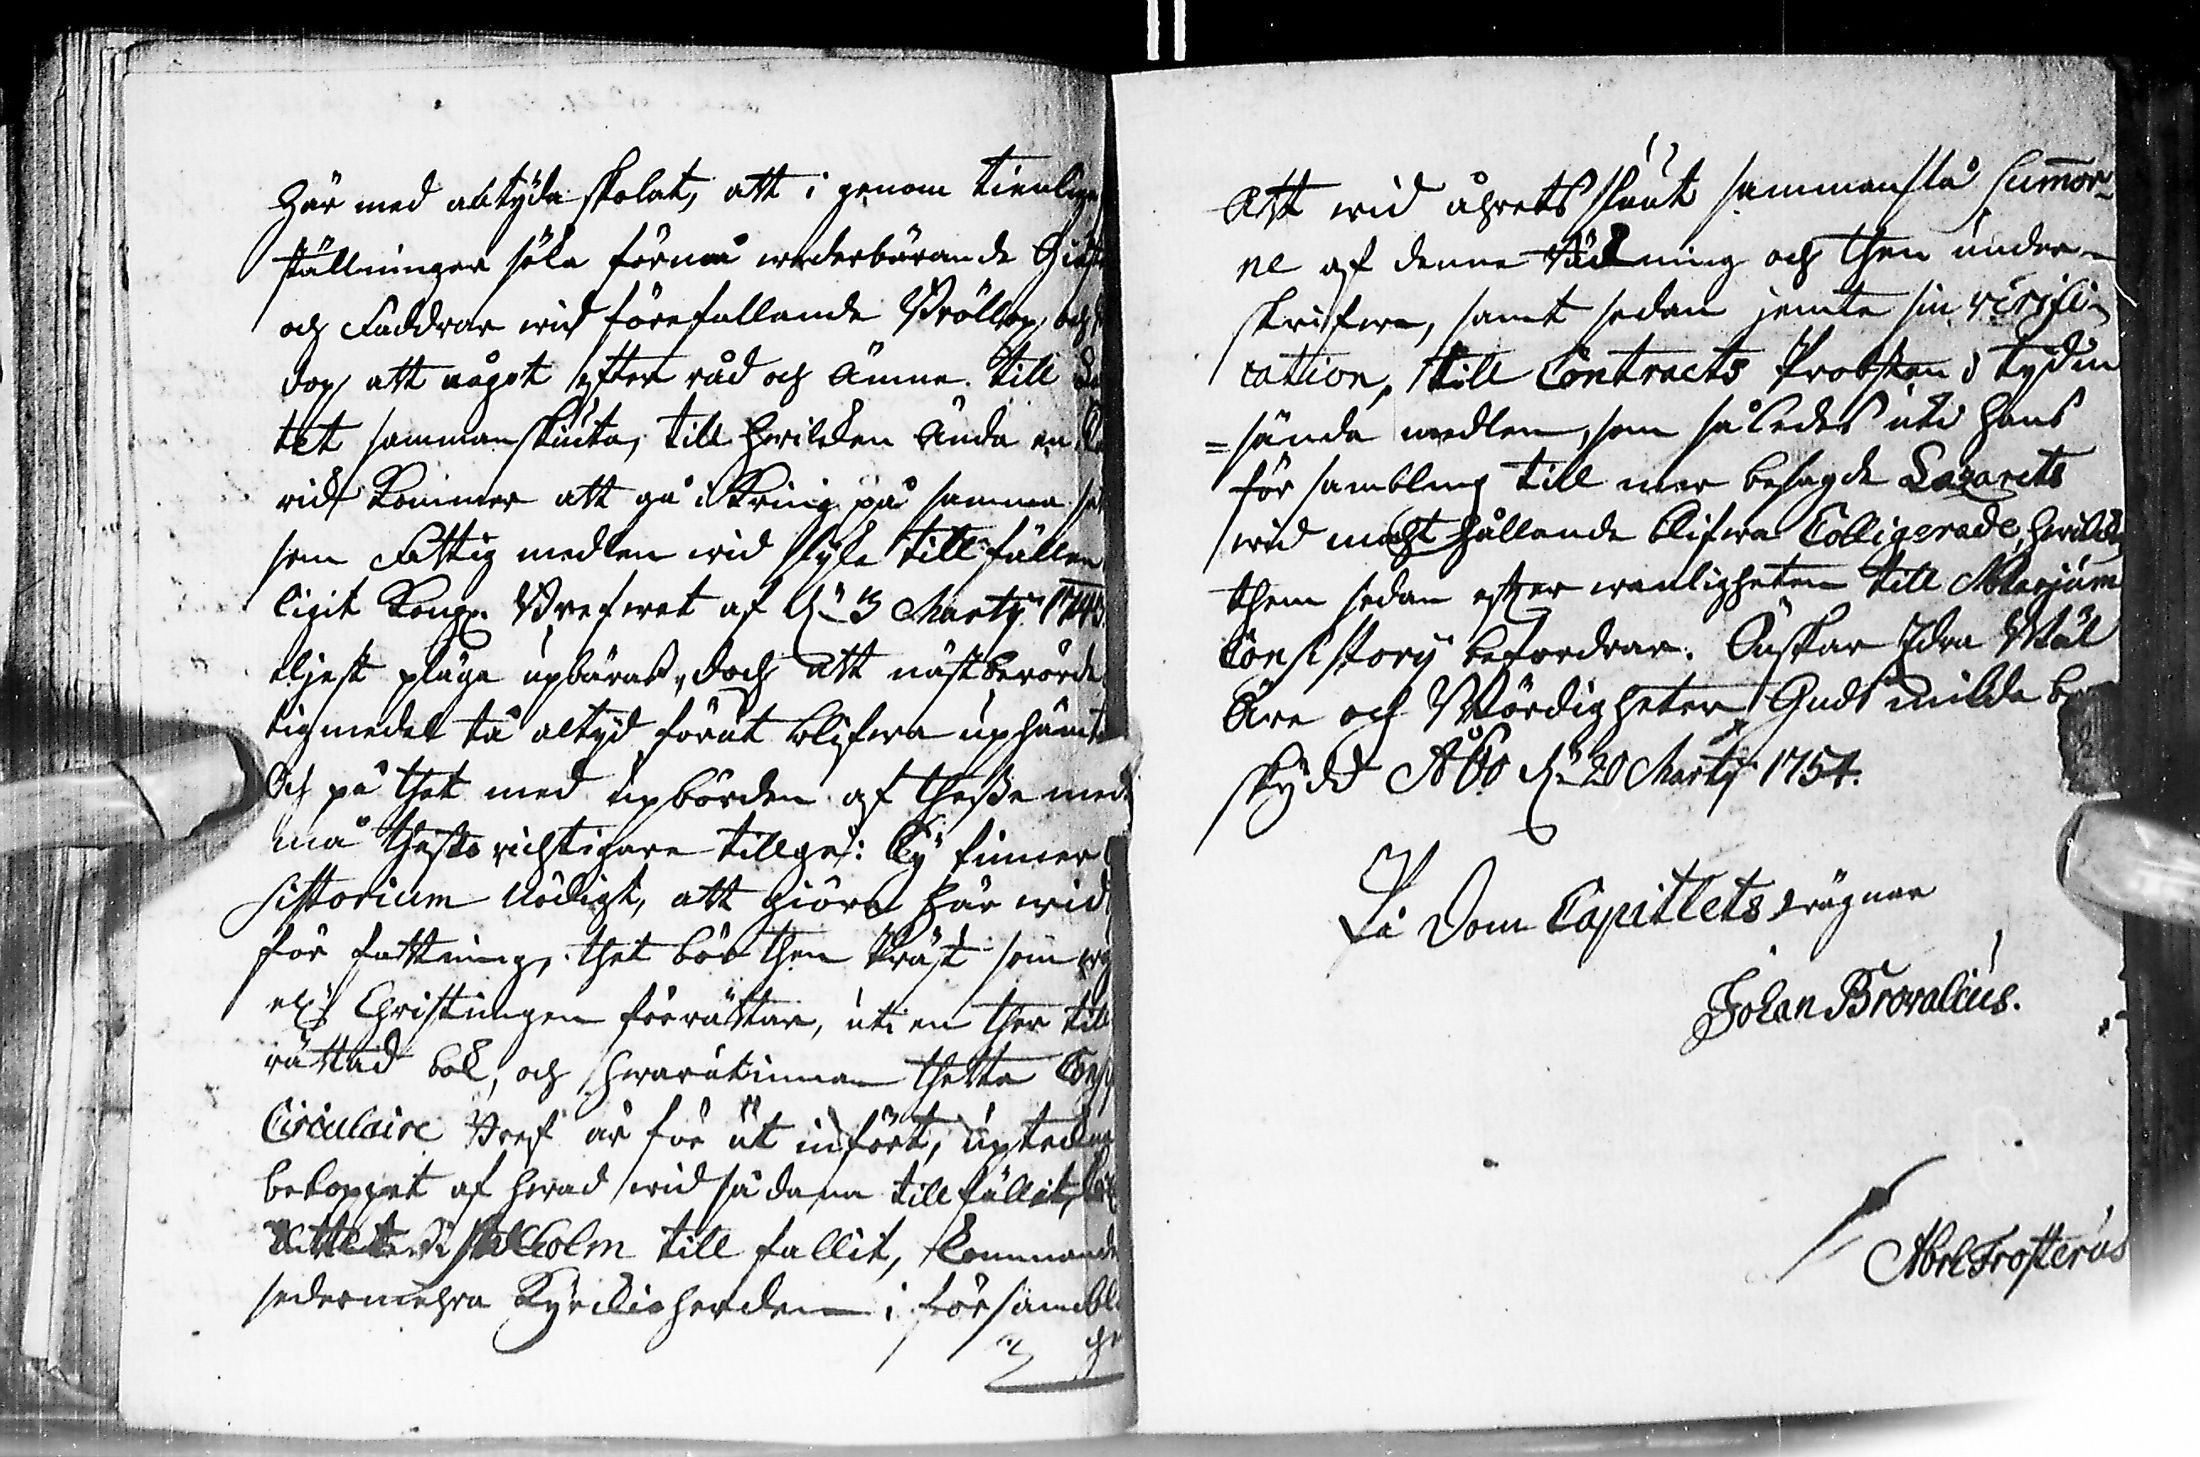 Här med antyda skolat, att i genom tienlige
ställningar söka förmå wederbörande Giäste
och Faddrar wid förefallande Bröllop, och
dop, att något efter råd och Ämne till
tet sammanskiuta, till hwilken Ända en
rid kommer att gå ikring på samma sä
som Fattig medlen wid slyke tillfällen
ligit Kongl. Brefwet af d: 3 Martii 1743.
eljest pläga upbäras, doch att nästberörde
tigmedel tå altyd förut blifwa uphämta
Och på thet med upbörden af theße mede
må thesto richtigare tillgå: Ty finner
sistorium nödigt, att giöra här wid
författning, thet bör then Präst som
el: Christningen förrättar, uti en ther till
rättad bok, och hwarutinnan thetta Cons
Circulaire Bref är för ut infört, upteckna
beloppet af hwad wid sådana tillfällen,
Stokholm till fallit, kommande
sedermehra Kyrckioherden i försambl
ge
Att wid åhrets slut sammanslå Sum̅or¬
ne af denne täckning och then under¬
skrifwa, samt sedan jemte sin verifi¬
cation, till Contracts Probsten i tyd in
=sända medlen, som således uti hans
försambling till mer besagde Lazarets
wid macht hållande blifwa Colligerade, hwilke
them sedan efter wanligheten till Aboæjum
Consistorii befordrar. Önskar Edra Wäl
Äre och Wördigheter Guds milda be
skydd Åbo d: 20 Martii 1754.
På Dom Capitlets wägnar
Johan Brovalius.
Abrl Frosterus